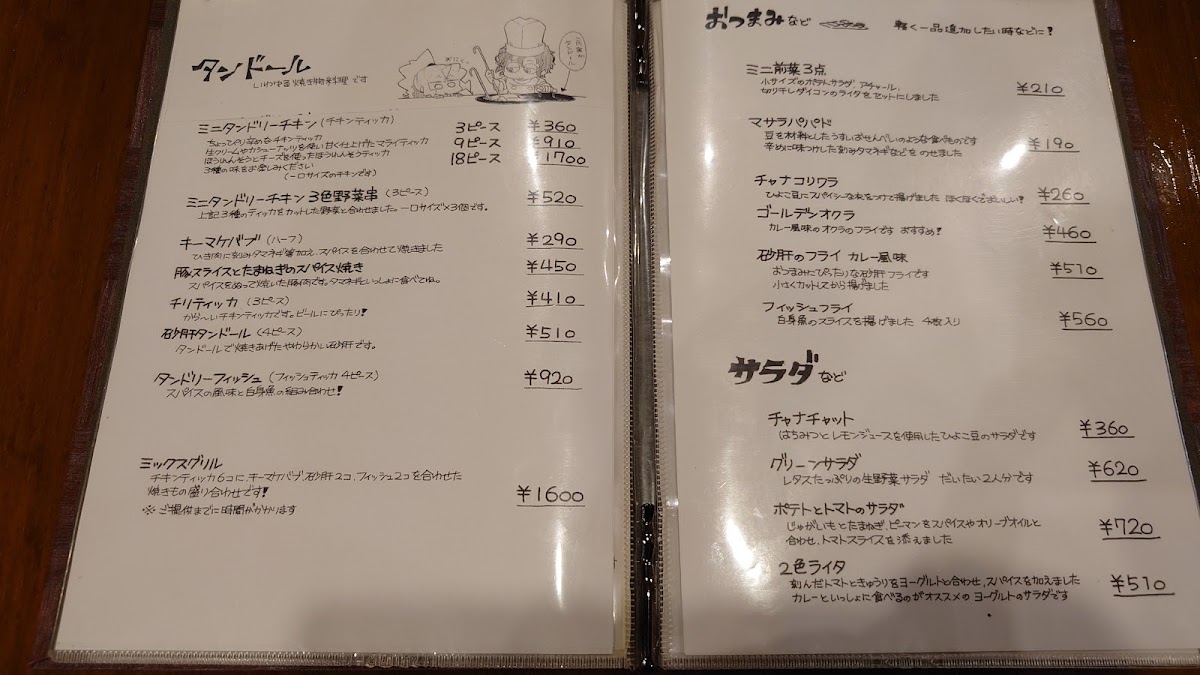 タンドール
いわゆる焼き物料理です
ミニタンドリーチキン（チキンティッカ）
3ピース ¥360
ちょっぴり辛めなチキンティッカ
9ピース ¥910
生クリームやカシューナッツを使い甘く仕上げたマライティッカ
18ピース ¥1700
ほうれんそうとチーズを使ったほうれんそうティッカ
3種の味をお楽しみください
（一口サイズのチキンです）
ミニタンドリーチキン3色野菜串（3ピース） ¥520
上記3種のティッカをカットした野菜と合わせました。一口サイズ×3個です。
キーマケバブ（ハーフ） ¥290
ひき肉に刻みタマネギ等加え、スパイスを合わせて焼きました
豚スライスとたまねぎのスパイス焼き ¥450
スパイスをぬって焼いた豚肉です。タマネギといっしょに食べてね。
チリティッカ（3ピース） ¥410
から〜いチキンティッカです。ビールにぴったり!
砂肝タンドール（4ピース） ¥510
タンドールで焼きあげたやわらかい砂肝です。
タンドリーフィッシュ（フィッシュティッカ 4ピース） ¥920
スパイスの風味と白身魚の組み合わせ!
ミックスグリル
チキンティッカ6コに、キーマケバブ、砂肝2コ、フィッシュ2コを合わせた
焼きもの盛り合わせです! ¥1600
※ご提供までに時間がかかります
おつまみなど 軽く一品追加したい時などに!
ミニ前菜3点 ¥210
小サイズのポテトサラダ、アチャール、
切り干しダイコンのライタをセットにしました
マサラパパド ¥190
豆を材料としたうすいおせんべいのような食べものです
辛めに味つけした刻みタマネギなどをのせました
チャナコリワラ ¥260
ひよこ豆にスパイシーな衣をつけて揚げました ほくほくでおいしい!
ゴールデンオクラ ¥460
カレー風味のオクラのフライです おすすめ!
砂肝のフライ カレー風味 ¥510
おつまみにぴったりな砂肝フライです
小さくカットしてから揚げました
フィッシュフライ ¥560
白身魚のスライスを揚げました 4枚入り
サラダなど
チャナチャット ¥360
はちみつとレモンジュースを使用したひよこ豆のサラダです
グリーンサラダ ¥620
レタスたっぷりの生野菜サラダ だいたい2人分です
ポテトとトマトのサラダ ¥720
じゃがいもとたまねぎ、ピーマンをスパイスやオリーブオイルと
合わせ、トマトスライスを添えました
2色ライタ ¥510
刻んだトマトときゅうりをヨーグルトと合わせ、スパイスを加えました
カレーといっしょに食べるのがオススメのヨーグルトのサラダです